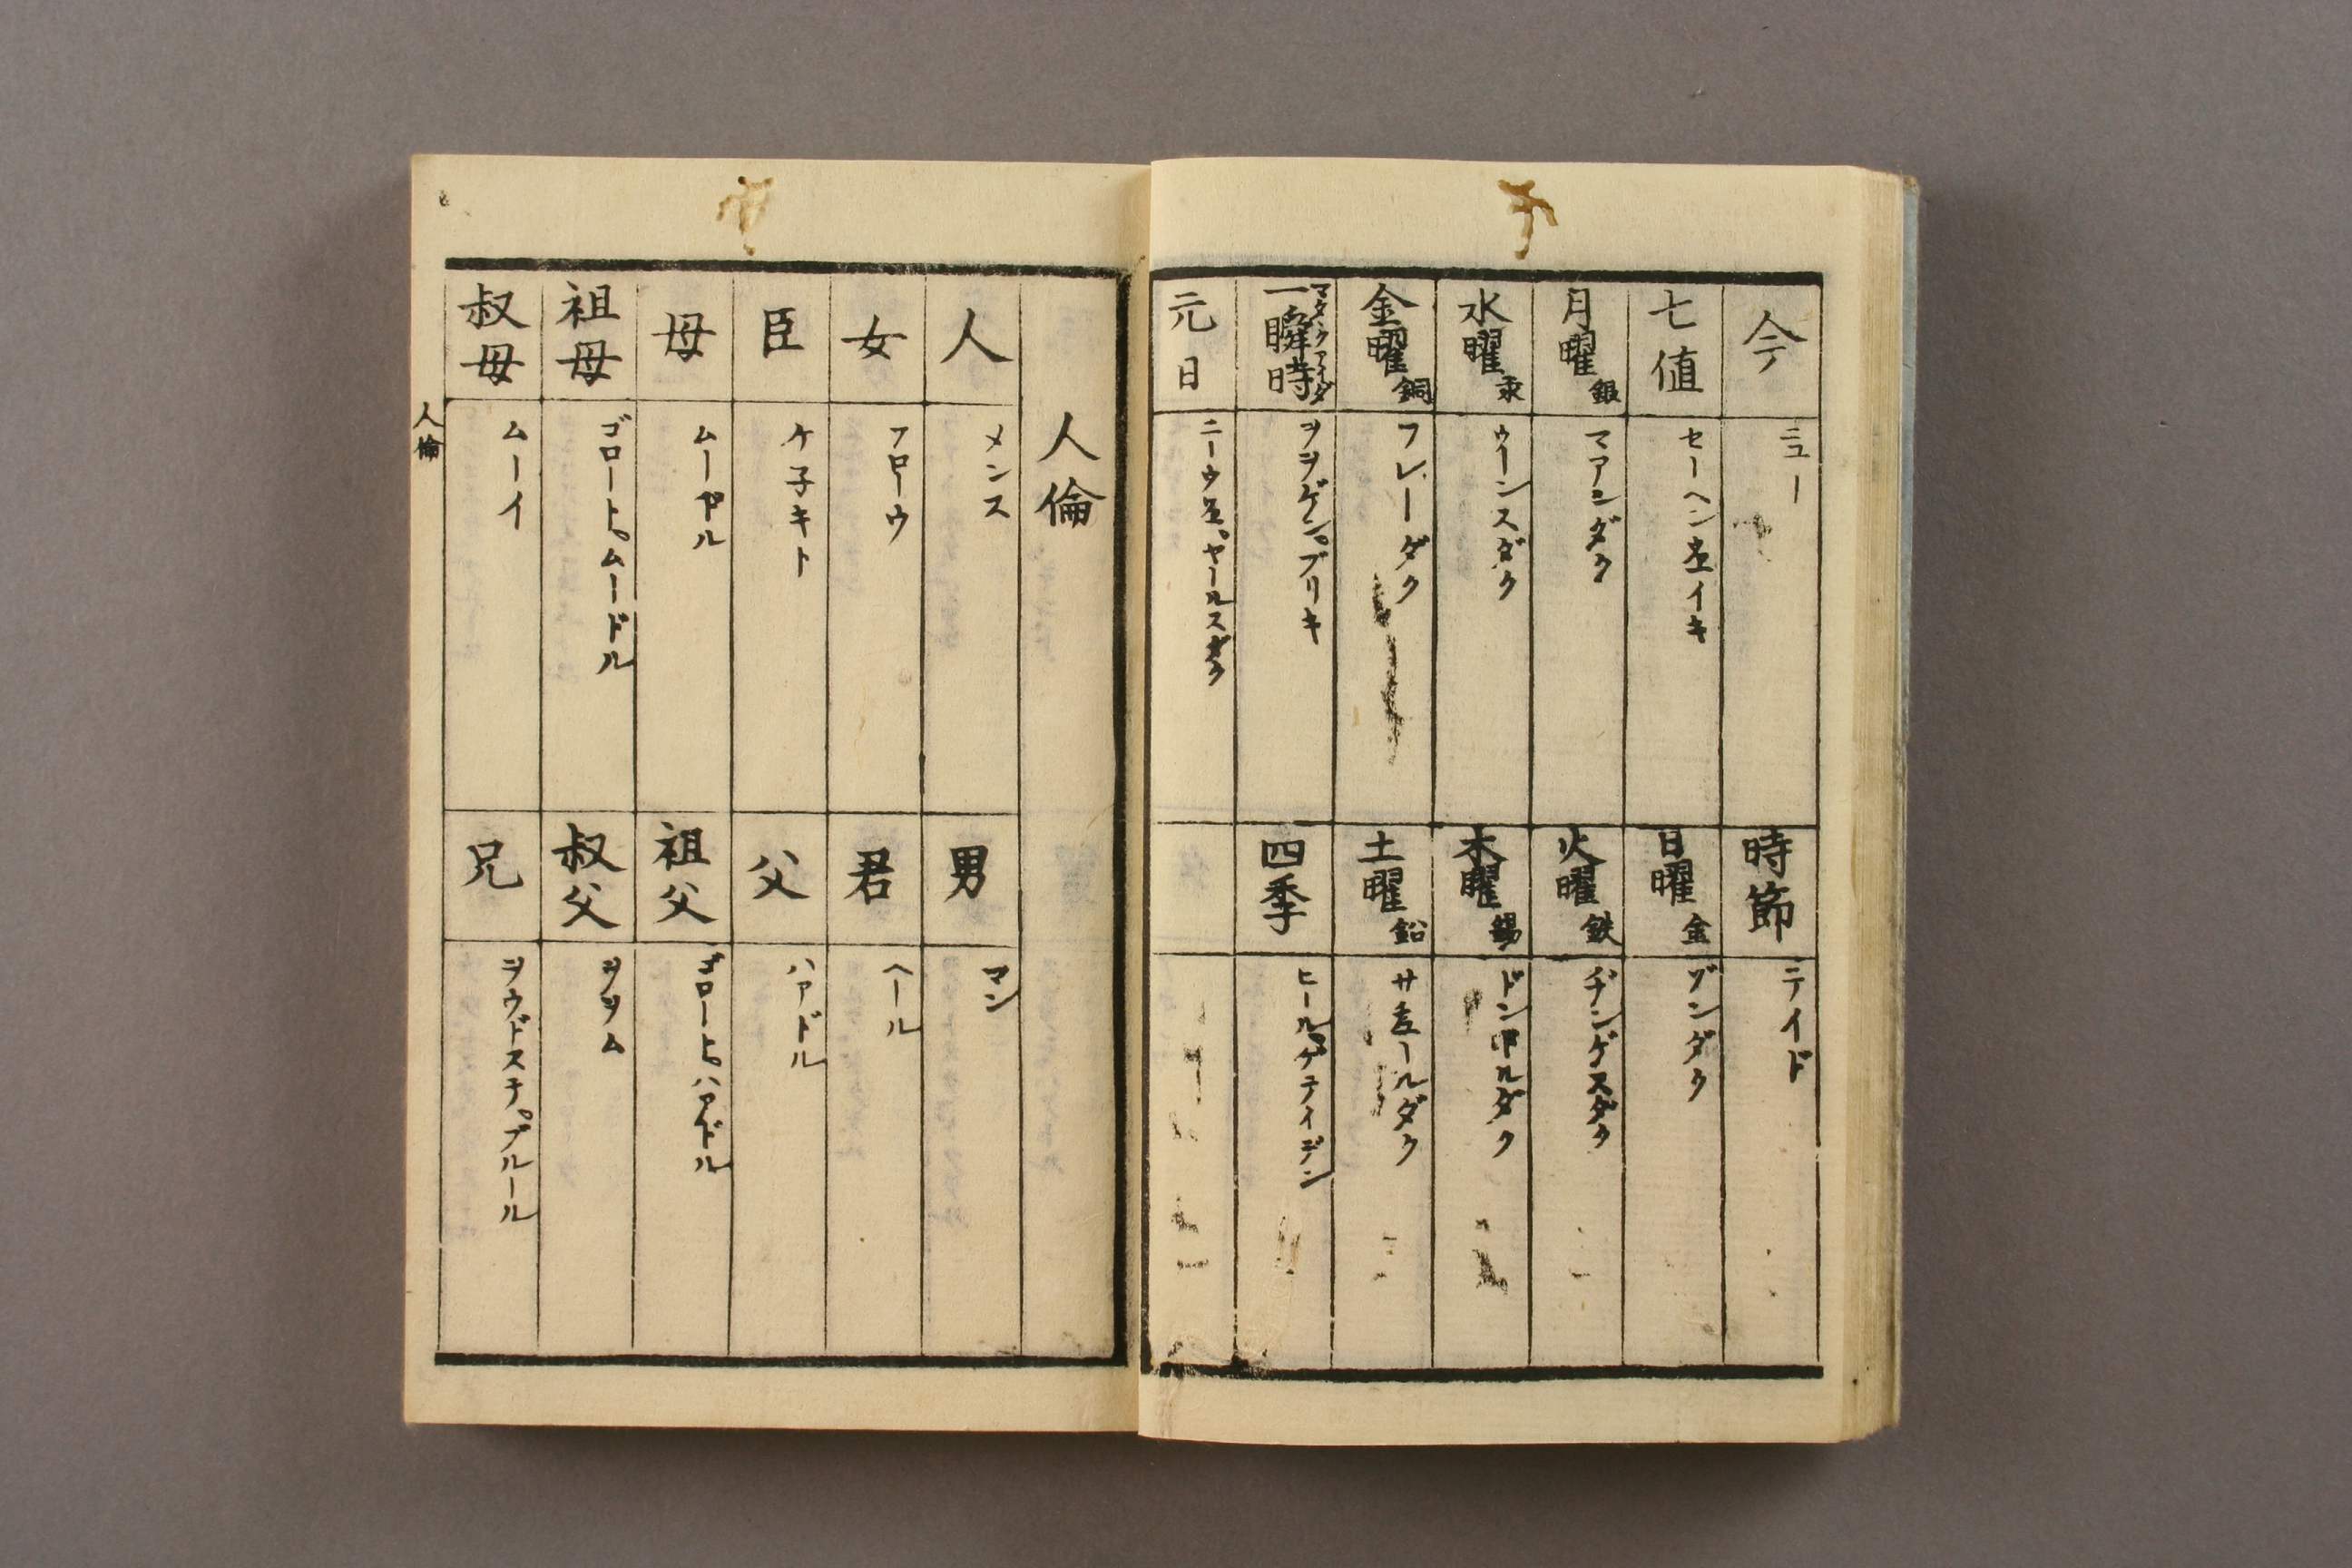 今 ニュー
時節 テイド
七値 セーヘン
日曜 金 ゾンダク
月曜 銀 マアンダク
火曜 鉄 ヂンゲスダク
水曜 汞 ウーンスダク
木曜 錫 ドンドルダク
金曜 銅 フレーダク
土曜 鉛
一瞬時 マタヽクアイダ ヲヲゲン。ブリキ
四季 ヒール。ゲテイデン
元日
人倫
人 メンス
男 マン
女 フロー ウ
君 ヘール
臣 ケ子キト
父 ハアドル
母 ムードル
祖父 ゴロート。ハアドル
祖母 ゴロート。ムードル
叔父 ヲヲム
叔母 ムーイ
兄 ヲウドステ。ブルール
人倫